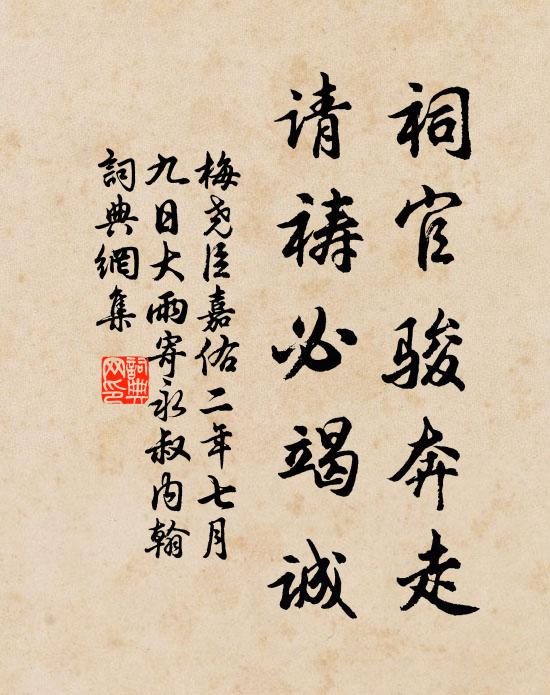 祠官骏奔走
请祷必竭诚
梅尧臣嘉佑二年七月
九日大雨寄永叔内翰
詞典網集
詞典网印